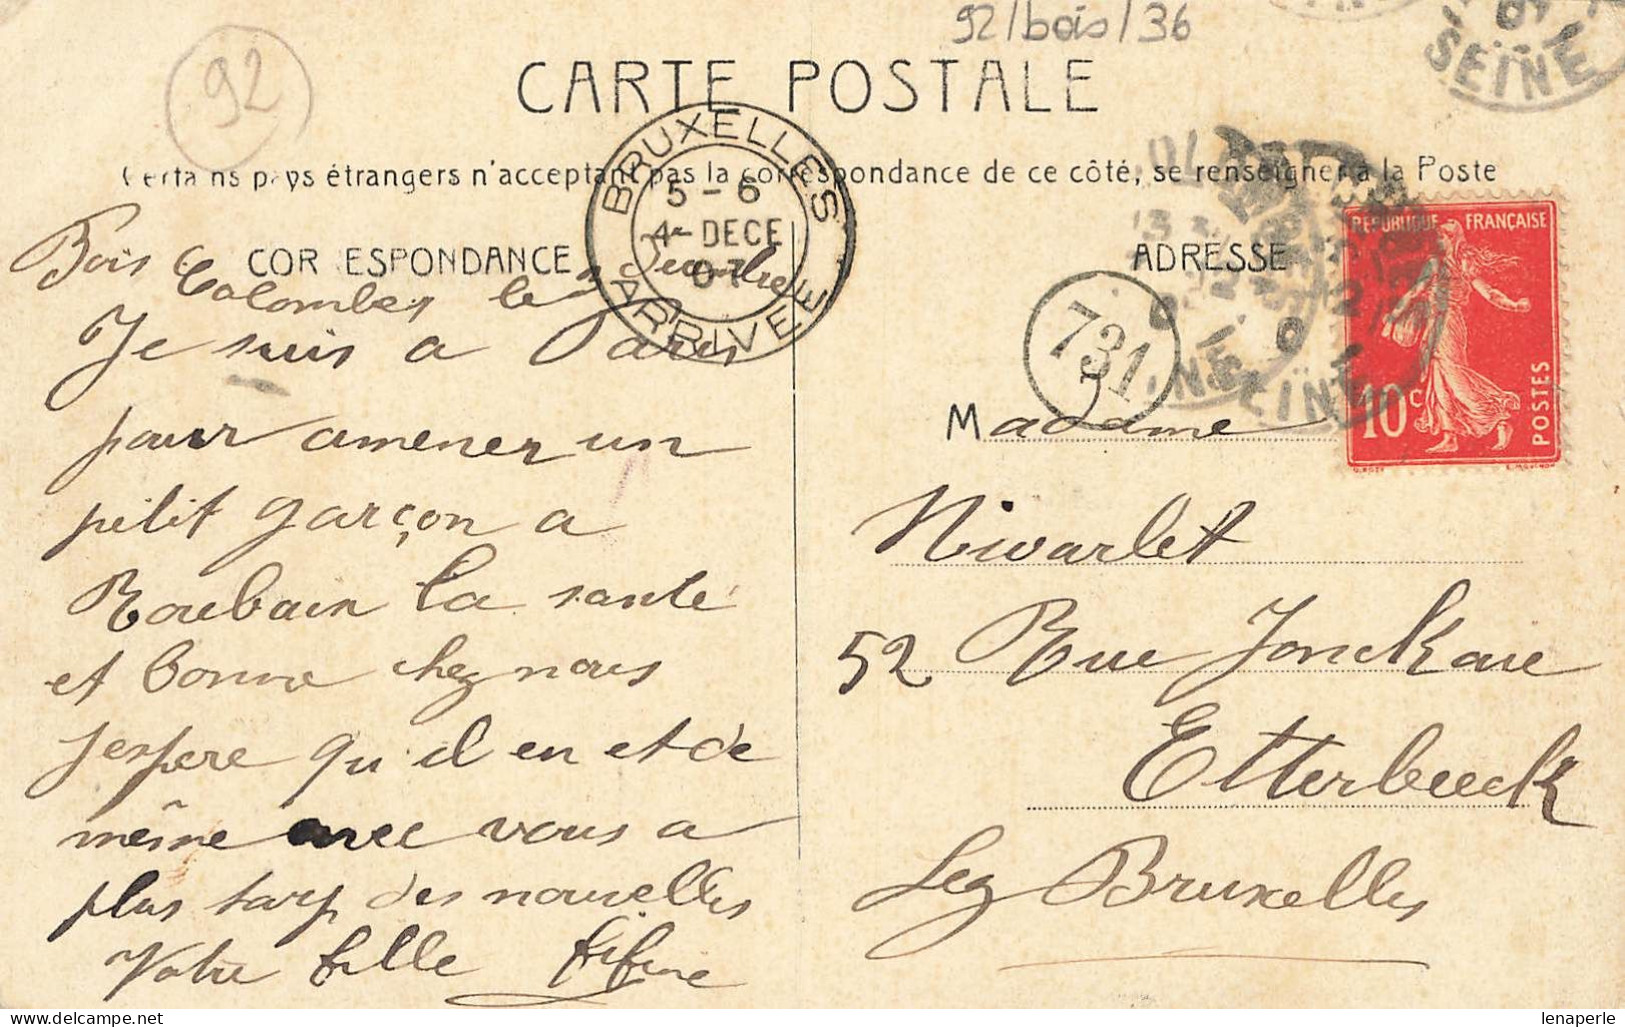 92/bois/36
92
CARTE POSTALE
Certains pays étrangers n'acceptant pas la correspondance de ce côté, se renseigner à la Poste
BRUXELLES
5 - 6
4 DECE
07
ARRIVEE
SEINE
CORRESPONDANCE
Bois Colombes le
Je suis a Paris
pour amener un
petit garçon a
Roubaix la sante
et bonne chez nous
jespere qu il en et de
même avec vous a
plus tarp des nouvelles
Votre fille fifine
ADRESSE
731
REPUBLIQUE FRANÇAISE
10c
POSTES
Madame
Nivarlet
52 Rue Jonckaie
Etterbeeck
Lez Bruxelles
delcampe.net
lenaperle